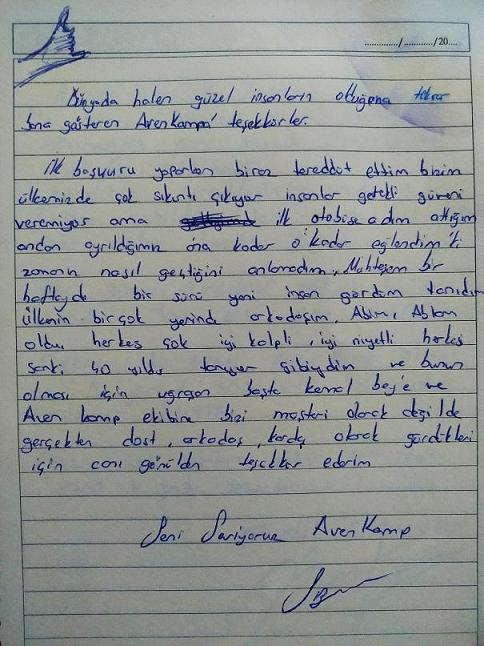 ............/............/20....
Dünyada halen güzel insanların olduğuna tekrar
bana gösteren AvenKampa' teşekkürler.
İlk başvuru yaparken biraz tereddüt ettim bizim
ülkemizde çok sıkıntı çıkıyor insanlar gerekli güveni
veremiyor ama ilk otobüse adım attığım
andan ayrıldığımız ana kadar o kadar eğlendim ki
zamanın nasıl geçtiğini anlamadım, Muhteşem bir
haftaydı bir sürü yeni insan gördüm tanıdım
ülkenin birçok yerinde arkadaşım, Abim, Ablam
oldu herkes çok iyi kalpli, iyi niyetli herkes
sanki 40 yıldır tanıyor gibiydim ve bunun
olması için uğraşan başta kemal bey'e ve
Aven kamp ekibine bizi müşteri olarak değilde
gerçekten dost, arkadaş, kardeş olarak gördükleri
için canı gönülden teşekkür ederim
Seni Seviyoruz AvenKamp